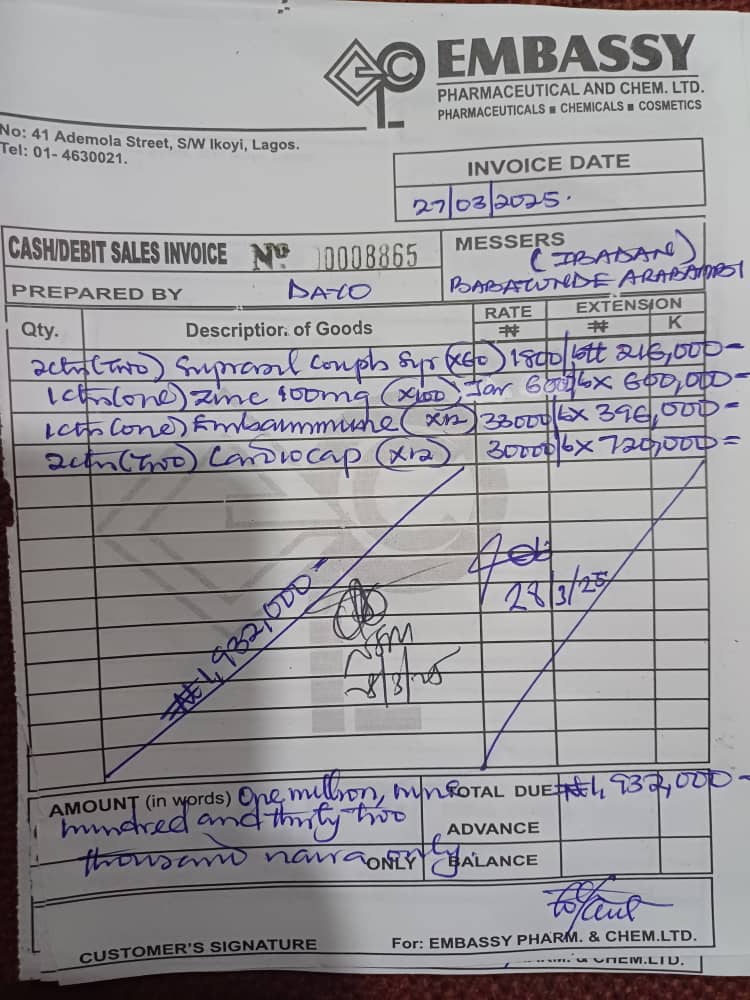 EMBASSY
PHARMACEUTICAL AND CHEM. LTD.
PHARMACEUTICALS ■ CHEMICALS ■ COSMETICS
No: 41 Ademola Street, S/W Ikoyi, Lagos.
Tel: 01- 4630021.
INVOICE DATE
27/03/2025.
CASH/DEBIT SALES INVOICE Nº 0008865
MESSERS (IBADAN)
BABATUNDE
PREPARED BY DAYO
Qty. Description of Goods RATE ₦ EXTENSION ₦ K
2ctn(Two) Coupb Syr (x60) 1800/btt 216,000=
1ctn(one) Zinc 100mg (x100) Jar 6000/bx 600,000=
1ctn(one) Embaimmune (x12) 33000/bx 396,000=
2ctn(Two) Cardiocap (x12) 30000/bx 720,000=
₦1,932,000=
28/3/25
AMOUNT (in words) One million, nine
hundred and thirty two
thousand naira only. ONLY
TOTAL DUE ₦1,932,000=
ADVANCE
BALANCE
CUSTOMER'S SIGNATURE
For: EMBASSY PHARM. & CHEM.LTD.
CHEM.LTD.